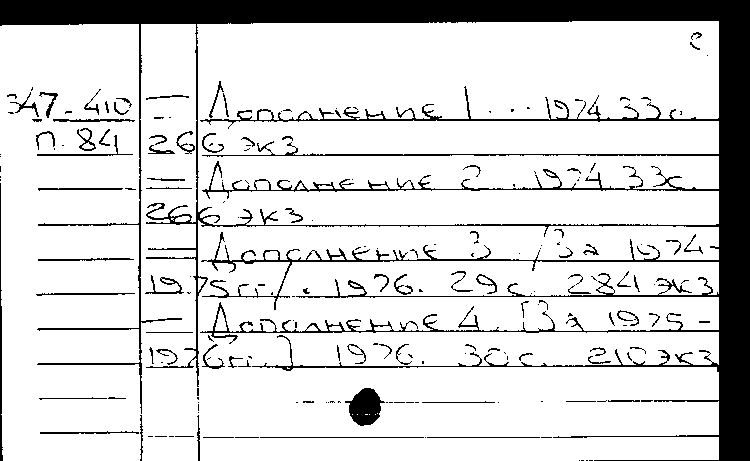 с
347-410 — Дополнение 1 ... 1974. 33с.
п. 84 266 экз.
— Дополнение 2. 1974. 33с.
266 экз.
— Дополнение 3 /За 1974-
1975гг/. 1976. 29с. 284 экз.
— Дополнение 4. [За 1975-
1976гг.] 1976. 30с. 210 экз